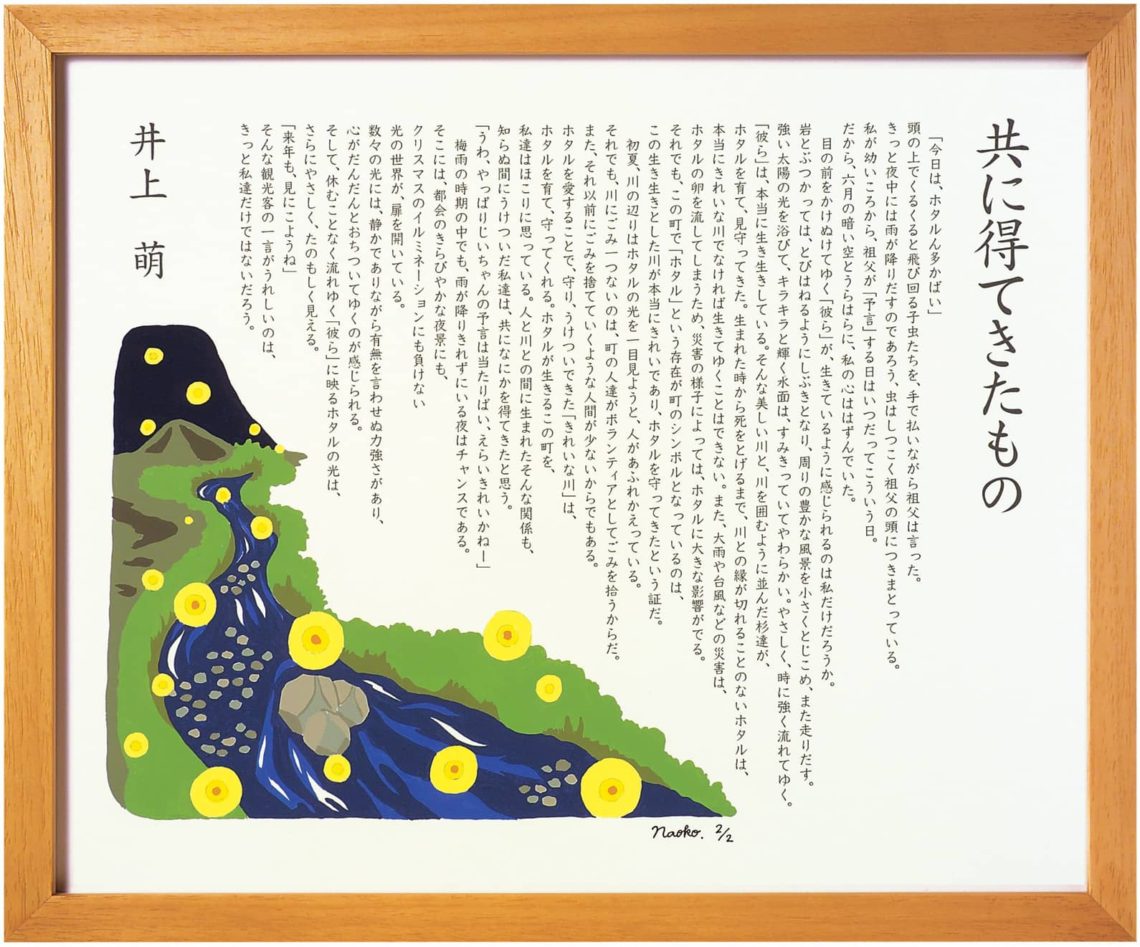 共に得てきたもの
「今日は、ホタルん多かばい」
頭の上でくるくると飛び回る子虫たちを、手で払いながら祖父は言った。
きっと夜中には雨が降りだすのであろう、虫はしつこく祖父の頭につきまとっている。
私が幼いころから、祖父が「予言」する日はいつだってこういう日。
だから、六月の暗い空とうらはらに、私の心ははずんでいた。
目の前をかけぬけてゆく「彼ら」が、生きているように感じられるのは私だけだろうか。
岩とぶつかっては、とびはねるようにしぶきとなり、周りの豊かな風景を小さくとじこめ、また走りだす。
強い太陽の光を浴びて、キラキラと輝く水面は、すみきっていてやわらかい。やさしく、時に強く流れてゆく。
「彼ら」は、本当に生き生きしている。そんな美しい川と、川を囲むように並んだ杉達が、
ホタルを育て、見守ってきた。生まれた時から死をとげるまで、川との縁が切れることのないホタルは、
本当にきれいな川でなければ生きてゆくことはできない。また、大雨や台風などの災害は、
ホタルの卵を流してしまうため、災害の様子によっては、ホタルに大きな影響がでる。
それでも、この町で「ホタル」という存在が町のシンボルとなっているのは、
この生き生きとした川が本当にきれいであり、ホタルを守ってきたという証だ。
初夏、川の辺りはホタルの光を一目見ようと、人があふれかえっている。
それでも、川にごみ一つないのは、町の人達がボランティアとしてごみを拾うからだ。
また、それ以前にごみを捨てていくような人間が少ないからでもある。
ホタルを愛することで、守り、うけついできた「きれいな川」は、
ホタルを育て、守ってくれる。ホタルが生きるこの町を、
私達はほこりに思っている。人と川との間に生まれたそんな関係も、
知らぬ間にうけついだ私達は、共になにかを得てきたと思う。
「うわ、やっぱりじいちゃんの予言は当たりばい、えらいきれいかねー」
梅雨の時期の中でも、雨が降りきれずにいる夜はチャンスである。
そこには、都会のきらびやかな夜景にも、
クリスマスのイルミネーションにも負けない
光の世界が、扉を開いている。
数々の光には、静かでありながら有無を言わせぬ力強さがあり、
心がだんだんとおちついてゆくのが感じられる。
そして、休むことなく流れゆく「彼ら」に映るホタルの光は、
さらにやさしく、たのもしく見える。
「来年も、見にこようね」
そんな観光客の一言がうれしいのは、
きっと私達だけではないだろう。
井上 萌
Naoko. 2/2